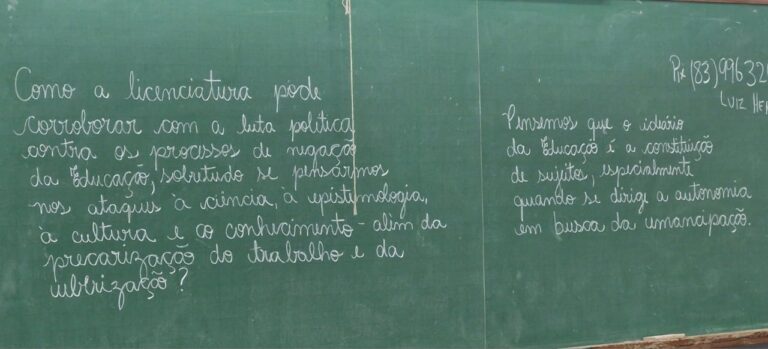 Como a licenciatura pode
corroborar com a luta política
contra os processos de negação
da Educação, sobretudo se pensarmos
nos ataques à ciência, à epistemologia,
à cultura e ao conhecimento - além da
precarização do trabalho e da
uberização?
Pensemos que o ideário
da Educação é a constituição
de sujeitos, especialmente
quando se dirige a autonomia
em busca da emancipação.
Pix (83) 99632
LUIZ HE